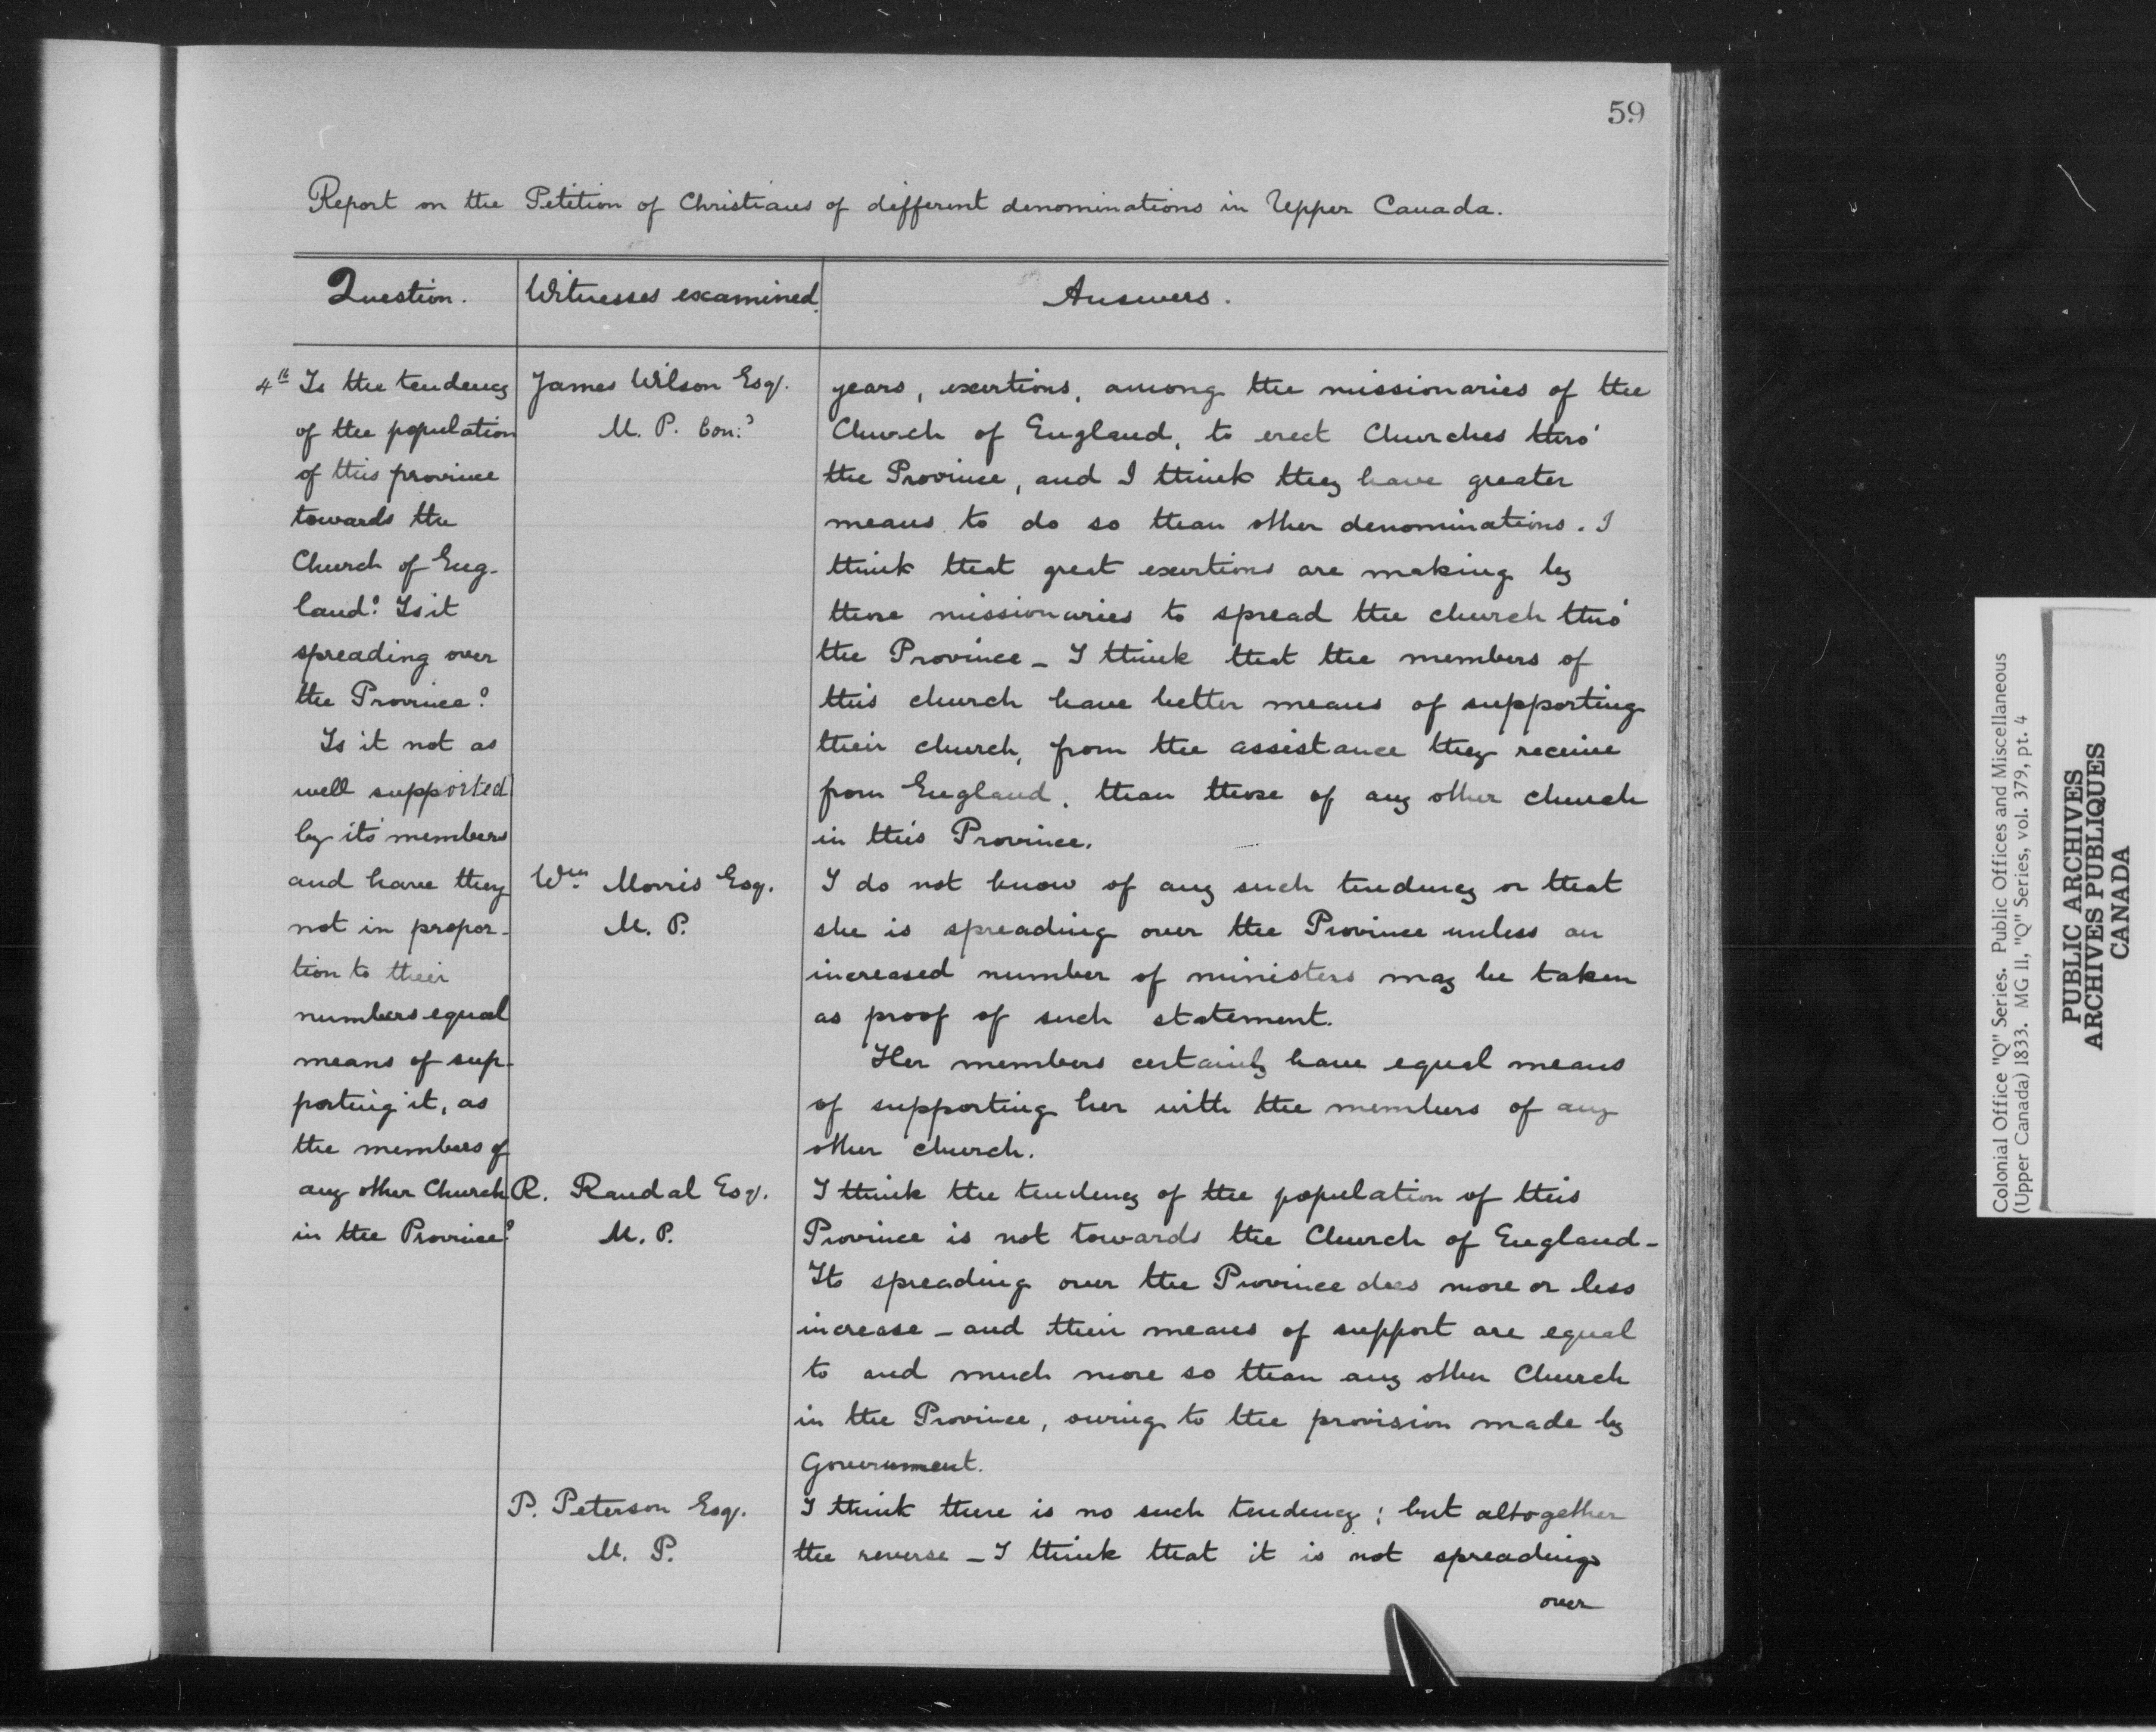 59
Report on the Petition of Christians of different denominations in Upper Canada.
Question.
Witnesses examined.
Answers.
4th Is the tendency
of the population
of this province
towards the
Church of Eng-
land? Is it
spreading over
the Province?
Is it not as
well supported
by its' members
and have they
not in propor-
tion to their
numbers equal
means of sup-
porting it, as
the members of
any other Church
in the Province?
James Wilson Esqr.
M. P. Con:d
years, exertions, among the missionaries of the
Church of England, to erect Churches thro'
the Province, and I think they have greater
means to do so than other denominations. I
think that great exertions are making by
those missionaries to spread the church thro'
the Province - I think that the members of
this church have better means of supporting
their church, from the assistance they receive
from England, than those of any other church
in this Province.
Wm. Morris Esq.
M. P.
I do not know of any such tendency or that
she is spreading over the Province unless an
increased number of ministers may be taken
as proof of such statement.
Her members certainly have equal means
of supporting her with the members of any
other church.
R. Randal Esqr.
M. P.
I think the tendency of the population of this
Province is not towards the Church of England -
Its spreading over the Province does more or less
increase - and their means of support are equal
to and much more so than any other Church
in the Province, owing to the provision made by
Government.
P. Peterson Esqr.
M. P.
I think there is no such tendency; but altogether
the reverse - I think that it is not spreading
over
Colonial Office "Q" Series. Public Offices and Miscellaneous
(Upper Canada) 1833. MG 11, "Q" Series, vol. 379, pt. 4
PUBLIC ARCHIVES
ARCHIVES PUBLIQUES
CANADA